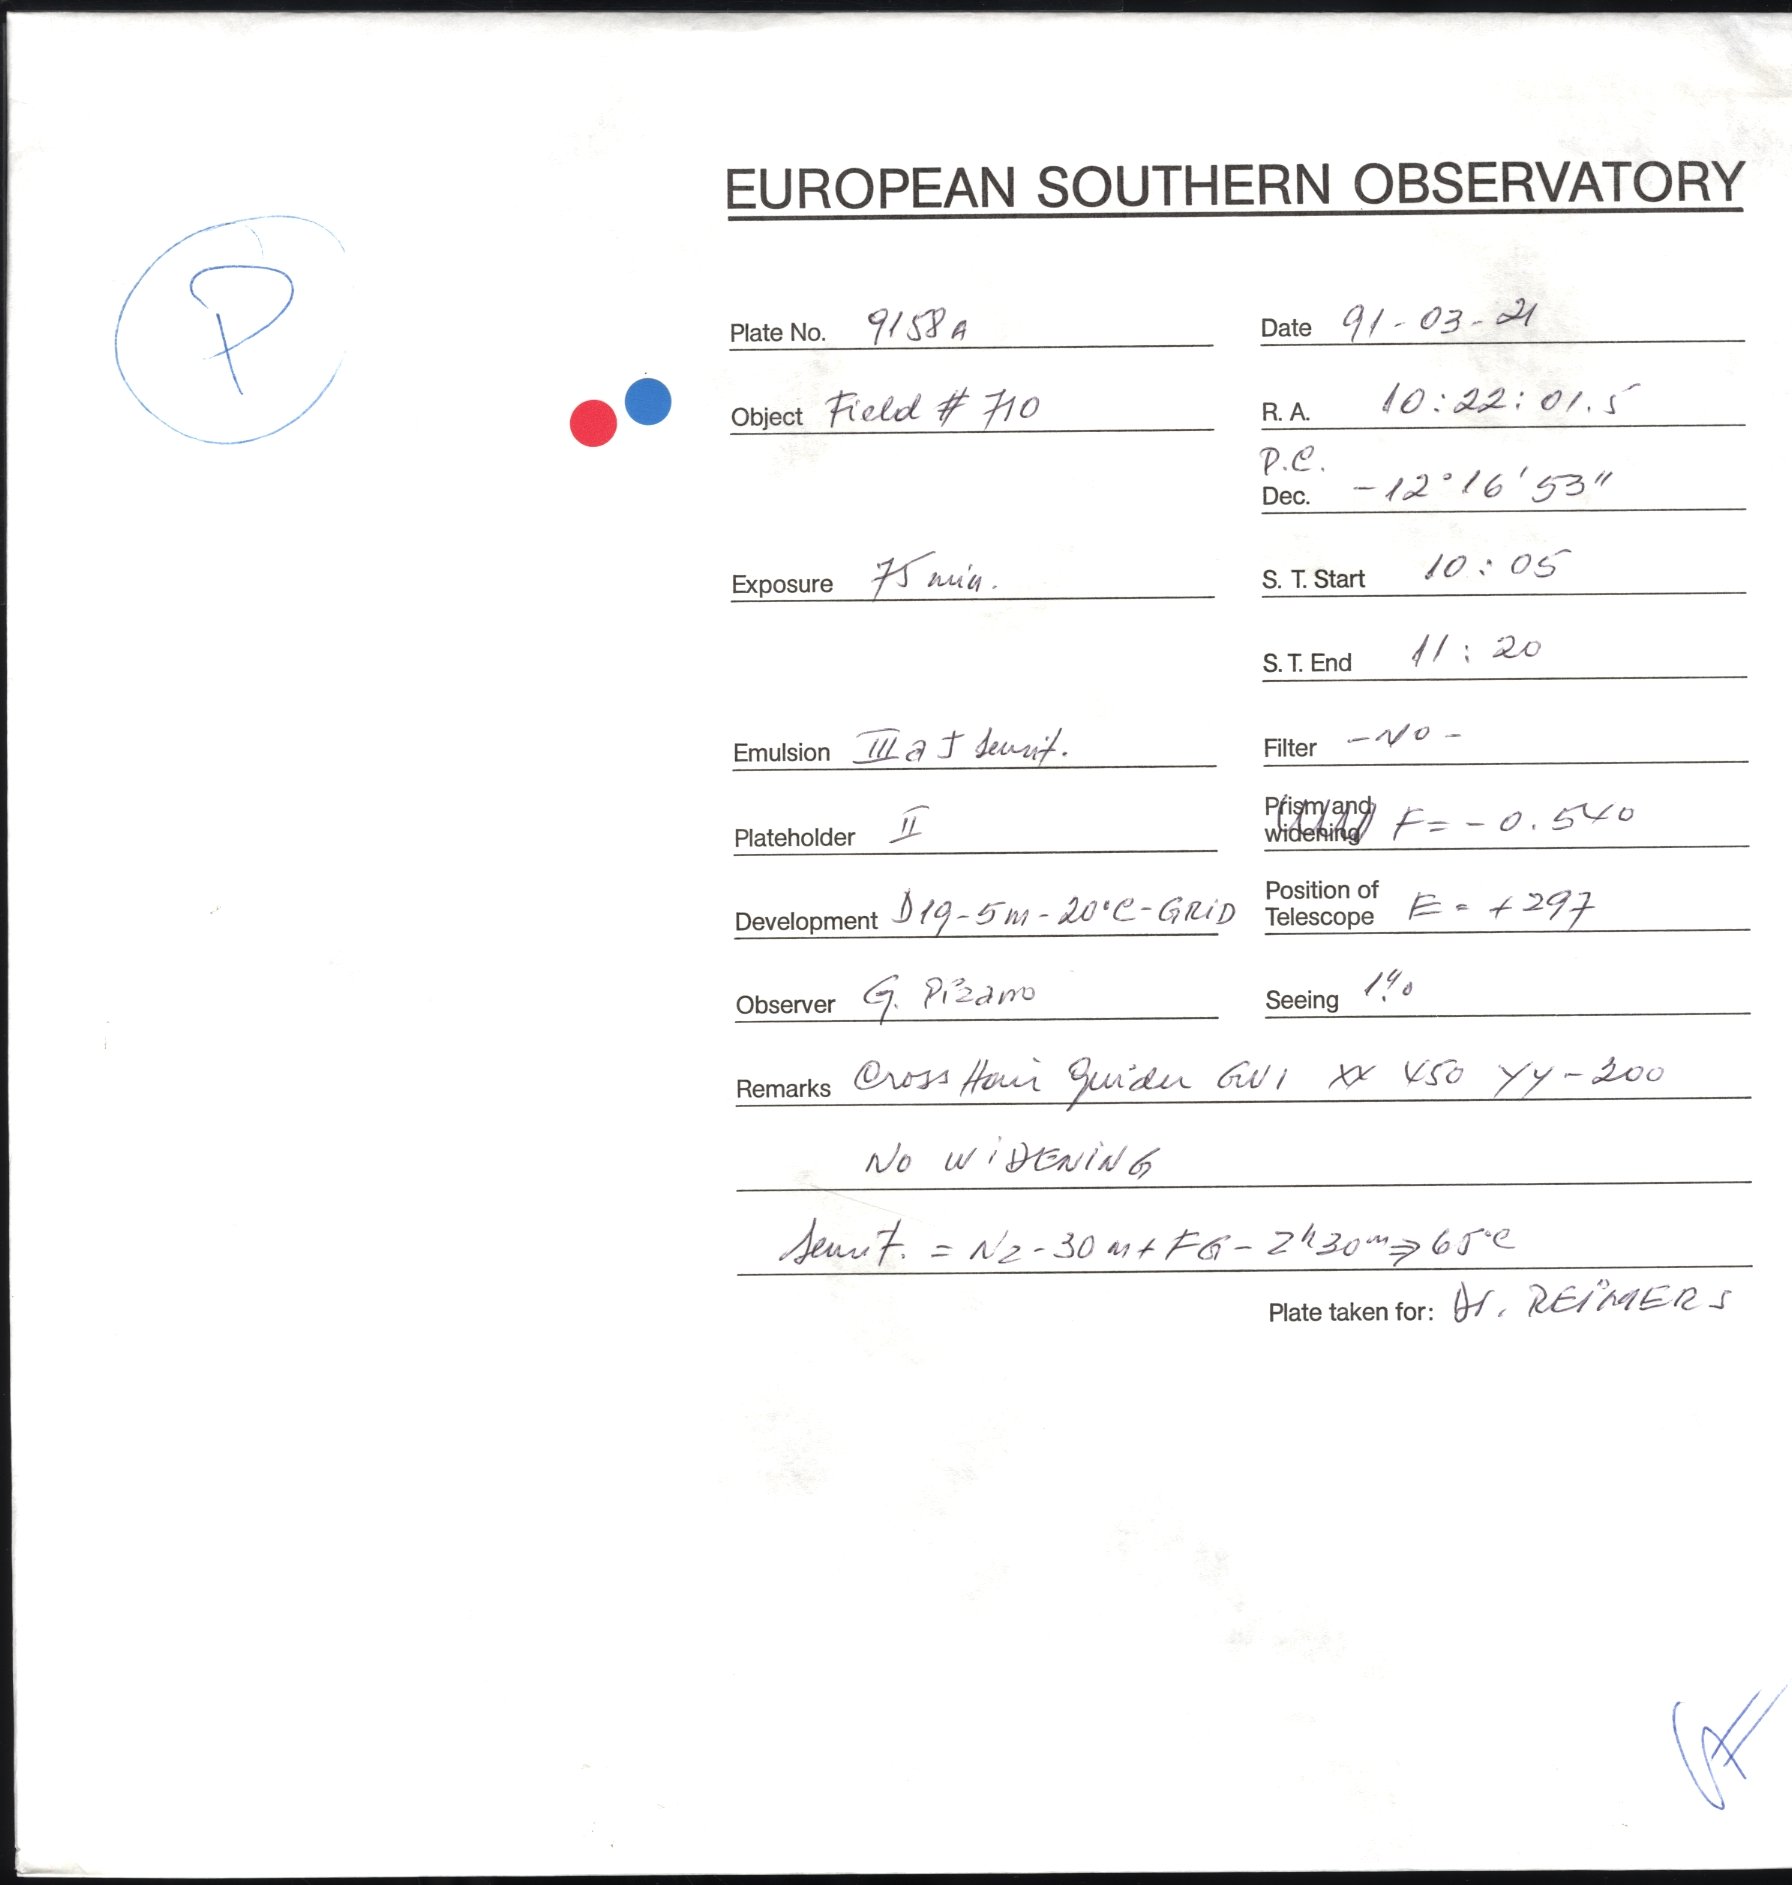 EUROPEAN SOUTHERN OBSERVATORY
P
Plate No. 9158A
Date 91-03-21
Object Field # 710
R. A. 10:22:01.5
P.C.
Dec. -12°16'53"
Exposure 75 min.
S. T. Start 10:05
S. T. End 11:20
Emulsion IIIaJ sensit.
Filter -NO-
Plateholder II
Prism and widening F= -0.540
Development D19-5m-20°C-GRID
Position of Telescope E= +297
Observer G. Pizarro
Seeing 1"0
Remarks Cross Hair guider GV1 XX 450 YY-200
NO WIDENING
Sensit. = N2-30m+FG-2h30m⇒65°C
Plate taken for: Dr. REIMERS